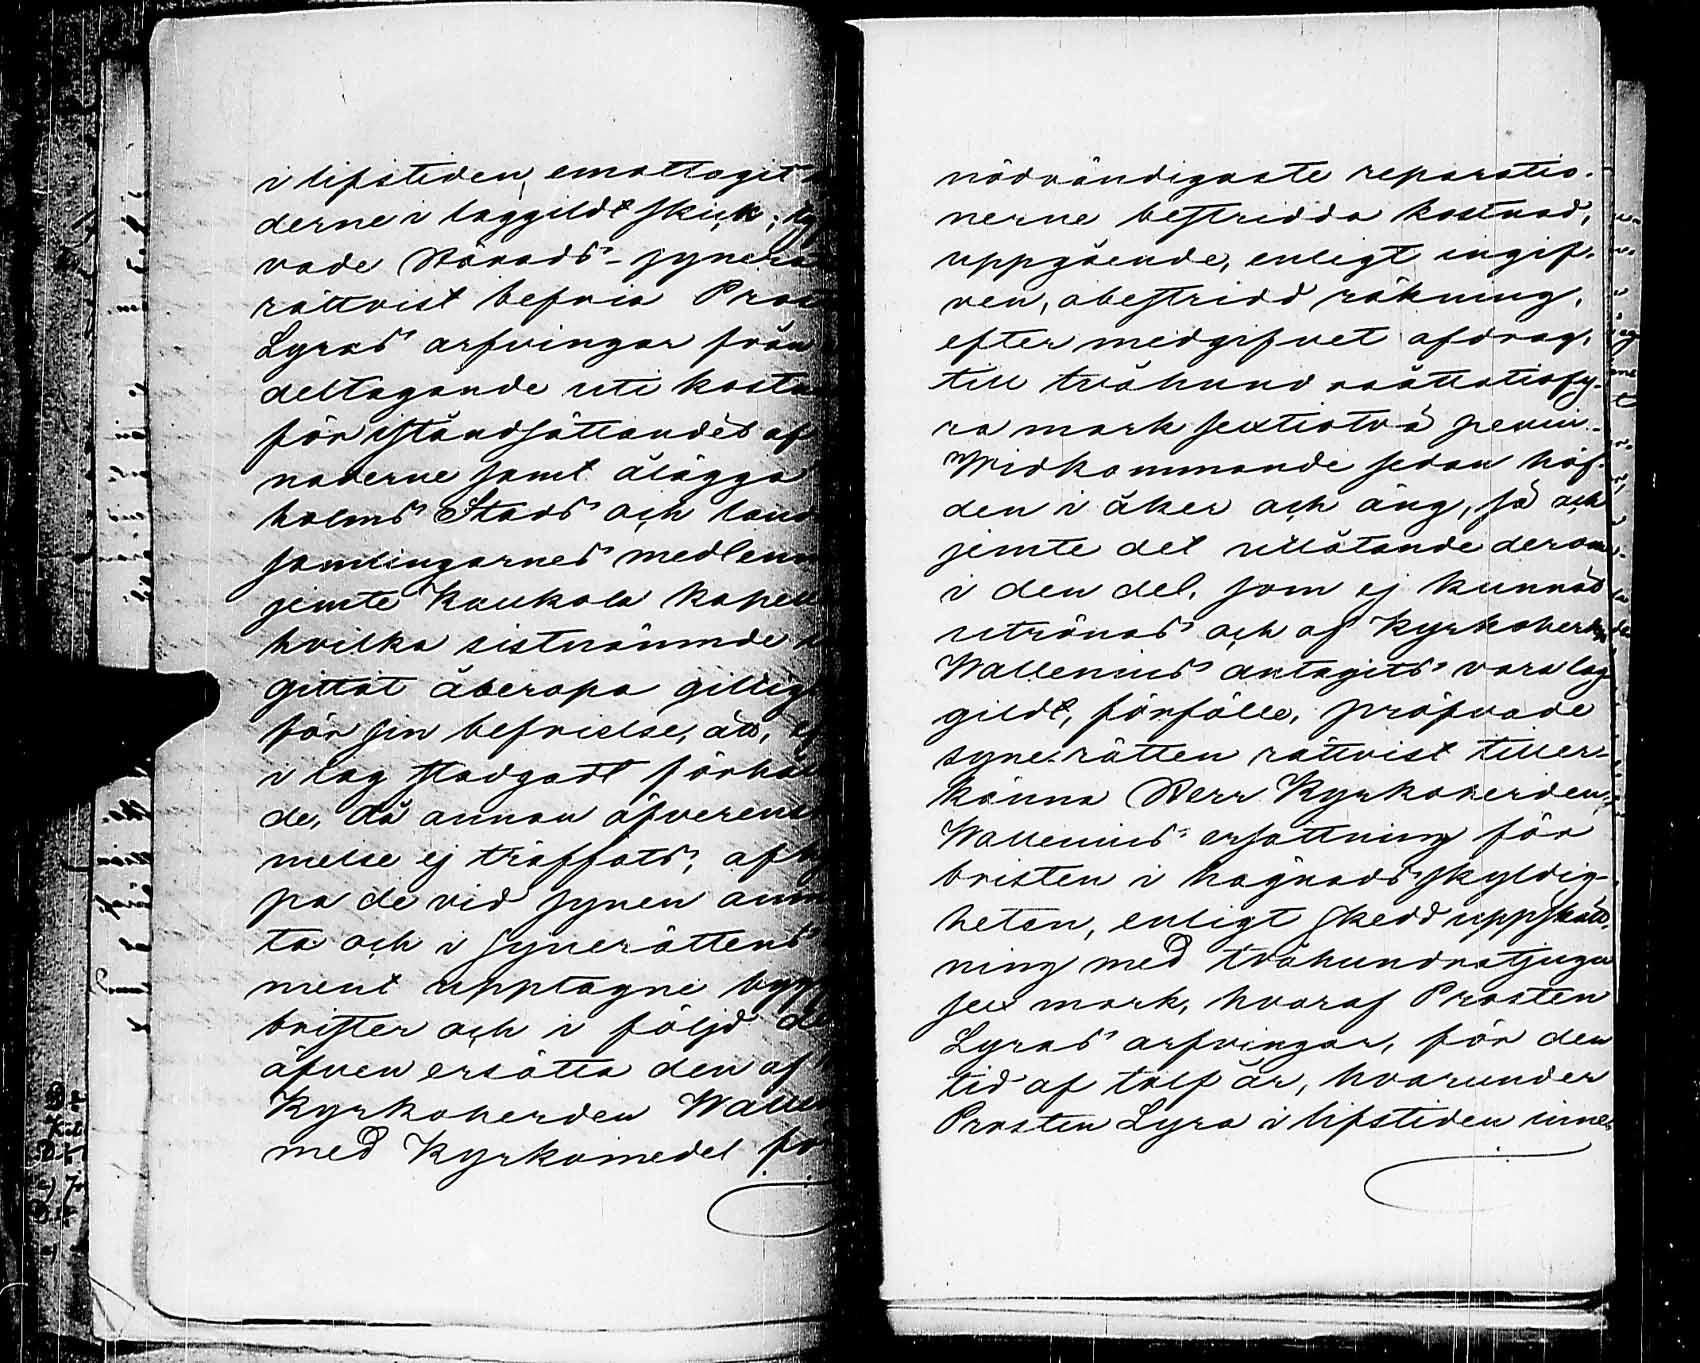 i lifstiden, emottagit
derne i laggildt skick;
vade Härads-synerä
rättvist befria Pros
Lyras arfvingar från
deltagande uti kostn
för iståndsättandet af
naderne samt ålägga
holms Stads och land
samlingarnes medlem
jemte Kaukola kapell
hvilka sistnämnde
gittat åberopa gillig
för sin befrielse, att, ej
i lag stadgadt förhål
de, då annan öfverens
melse ej träffats, afhj
pa de vid synen anm
ta och i Synerättens
ment upptagne bygg
brister och i följd de
äfven ersätta den af
Kyrkoherden Walle
med Kyrkomedel för
nödvändigaste reparatio-
nerne bestridda kostnad,
uppgående, enligt ingif-
ven, obestridd räkning,
efter medgifvet afdrag,
till tvåhundraåttatiofy-
ra mark sextiotvå penni.
Widkommande sedan häf-
den i åker och äng, så och
jemte det utlåtande derom
i den del, som ej kunnat
utrönas och af Kyrkoherden
Wallenius antagits vara lag-
gildt, förfölle, pröfvade
syne-rätten rättvist tiller-
känna Herr Kyrkoherden
Wallenius ersättning för
bristen i hägnadsskyldig-
heten, enligt skedd uppskatt-
ning med tvåhundratjugu
sex mark, hvaraf Prosten
Lyras arfvingar, för den
tid af tolf år, hvarunder
Prosten Lyra i lifstiden inne-